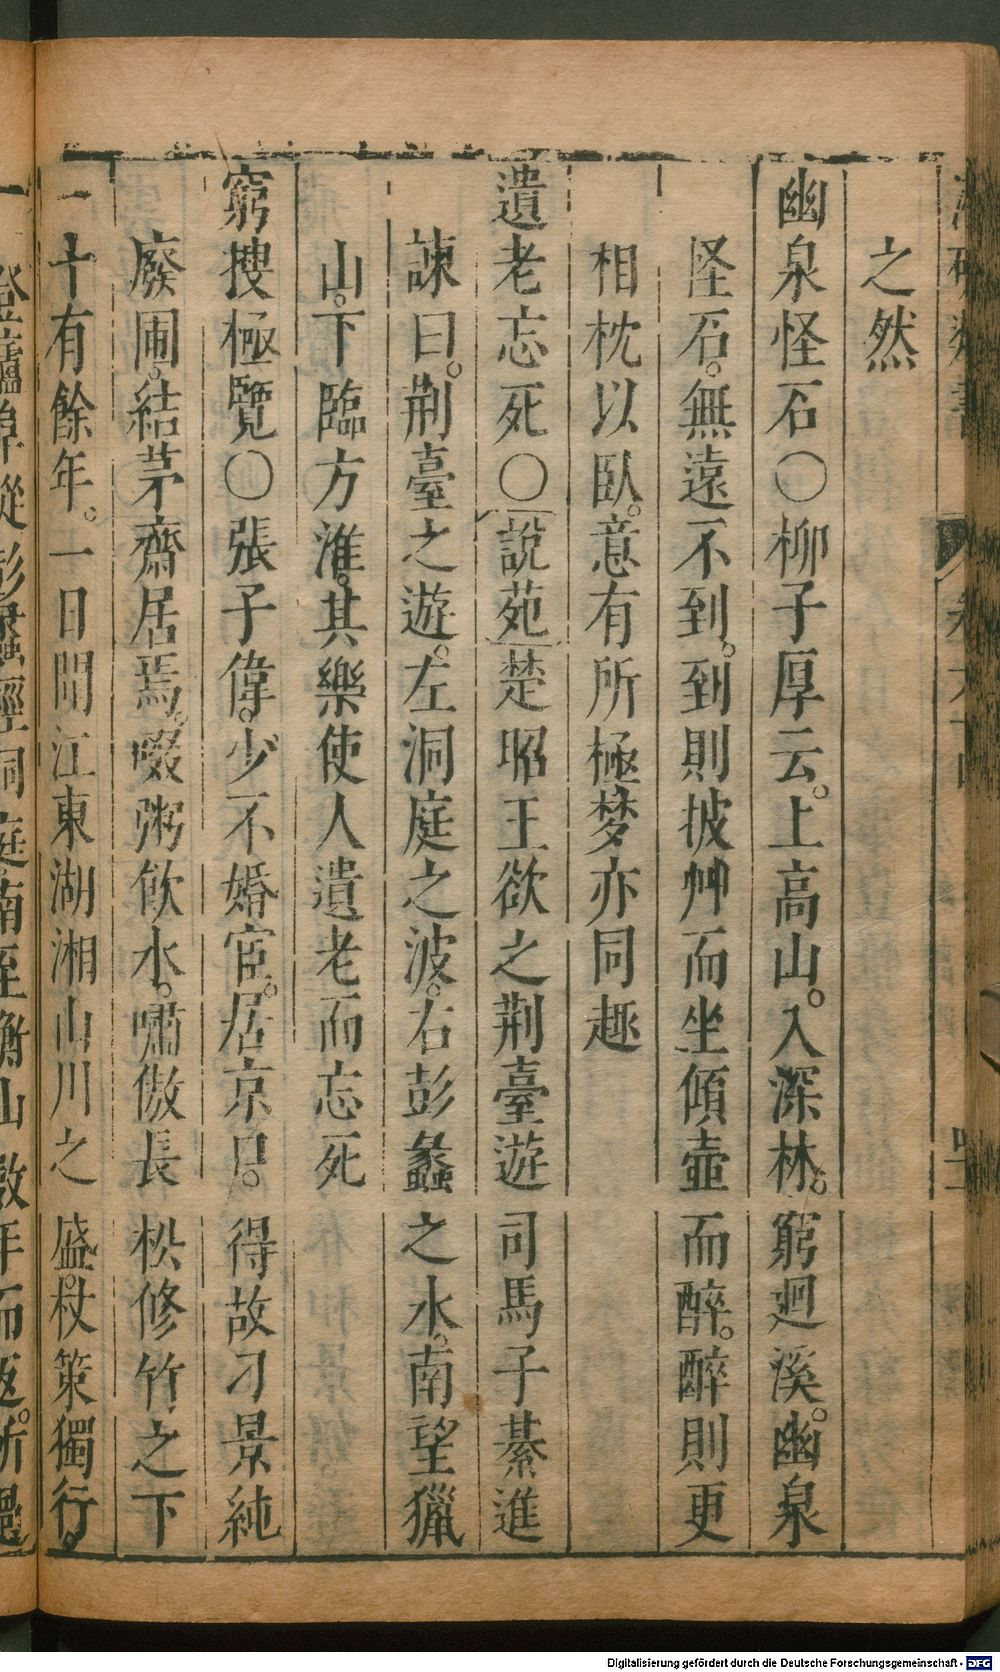 之然
幽泉怪石○柳子厚云。上高山。入深林。窮迴溪。幽泉
怪石。無遠不到。到則披艸而坐傾壺而醉。醉則更
相枕以臥。意有所極梦亦同趣
遺老忘死○說苑楚昭王欲之荆臺遊司馬子綦進
諫曰。荆臺之遊。左洞庭之波。右彭蠡之水。南望獵
山。下臨方淮。其樂使人遺老而忘死
窮搜極覽○張子偉。少不婚宦。居京口。得故刁景純
廢圃。結茅齋居焉。啜粥飲水。嘯傲長松修竹之下
二十有餘年。一日聞江東湖湘山川之盛。杖策獨行。
登廬阜從彭蠡經洞庭。南至衡山數年而返。所
Digitalisierung gefördert durch die Deutsche Forschungsgemeinschaft - DFG